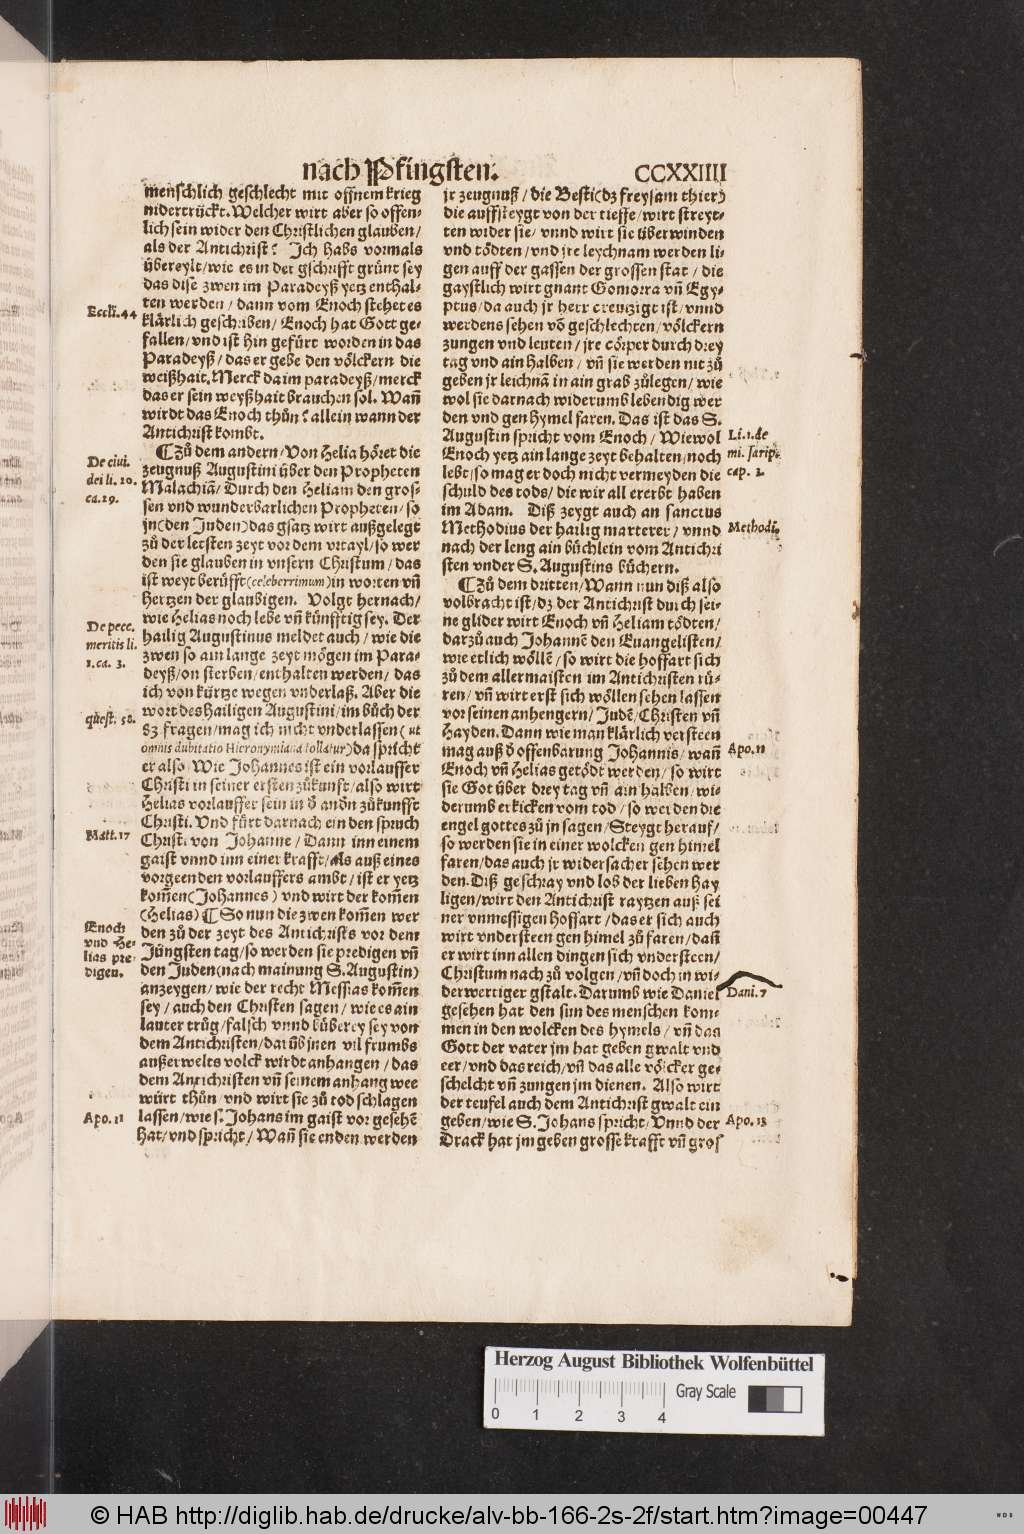 nach Pfingsten. CCXXIIII
menschlich geschlecht mit offnem krieg
nidertrückt. Welcher wirt aber so offen-
lich sein wider den Christlichen glauben /
als der Antichrist? Ich habs vormals
übereylt / wie es in der gschrifft grünt sey
das dise zwen im Paradeyß yetz enthal-
ten werden / dann vom Enoch stehet es
klärlich geschriben / Enoch hat Gott ge-
fallen / vnd ist hin gefürt worden in das
Paradeyß / das er gebe den völckern die
weißhait. Merck da im paradeyß / merck
das er sein weyßhait brauchen sol. Wañ
wirdt das Enoch thůn? allein wann der
Antichrist kombt.
Eccli. 44
¶ Zů dem andern / Von Helia höret die
zeugnuß Augustini über den Propheten
Malachiã / Durch den Heliam den gros-
sen vnd wunderbarlichen Propheten / so
jn (den Juden) das gsatz wirt außgelegt
zů der letsten zeyt vor dem vrtayl / so wer
den sie glauben in vnsern Christum / das
ist weyt berüfft (celeberrimum) in worten vñ
hertzen der glaubigen. Volgt hernach /
wie Helias noch lebe vñ künfftig sey. Der
hailig Augustinus meldet auch / wie die
zwen so ain lange zeyt mögen im Para-
deyß / on sterben / enthalten werden / das
ich von kürtze wegen vnderlaß. Aber die
wort des hailigen Augustini / im bůch der
83 fragen / mag ich nicht vnderlassen (ut
omnis dubitatio Hieronymiana tollatur) da spricht
er also / Wie Johannes ist ein vorlauffer
Christi in seiner ersten zůkunft / also wirt
Helias vorlauffer sein in ð andn zůkunfft
Christi. Vnd fürt darnach ein den spruch
Christi von Johanne / Dann inn einem
gaist vnnd inn einer krafft / als auß eines
vorgeenden vorlauffers ambt / ist er yetz
kom̃en (Johannes) vnd wirt der kom̃en
(Helias) ¶ So nun die zwen kom̃en wer
den zů der zeyt des Antichrists vor dem
Jüngsten tag / so werden sie predigen vñ
den Juden (nach mainung S. Augustin)
anzeygen / wie der recht Messias kom̃en
sey / auch den Christen sagen / wie es ain
lauter trůg / falsch vnnd büberey sey von
dem Antichristen / darüb jnen vil frumbs
außerwelts volck wirdt anhangen / das
dem Antichristen vñ seinem anhang wee
würt thůn / vnd wirt sie zů tod schlagen
lassen / wie s. Johans im gaist vor gesehẽ
hat / vnd spricht / Wañ sie enden werden
De ciui.
dei li. 20.
ca. 29.
De pecc.
meritis li.
1. ca. 3.
quest. 58.
Matt. 17
Enoch
vnd He-
lias pre-
digen.
Apo. 11
jr zeugnuß / die Besti (dz freysam thier)
die auffsteygt von der tieffe / wirt streyt-
ten wider sie / vnnd wirt sie überwinden
vnd tödten / vnd jre leychnam werden li-
gen auff der gassen der grossen stat / die
gaystlich wirt gnant Gomorra vñ Egy-
ptus / da auch jr herr creutzigt ist / vnnd
werdens sehen võ geschlechten / völckern
zungen vnd leuten / jre cörper durch drey
tag vnd ain halben / vñ sie werden nit zů
geben jr leichnã in ain grab zůlegen / wie
wol sie darnach widerumb lebendig wer
den vnd gen hymel faren. Das ist das S.
Augustin spricht vom Enoch / Wiewol
Enoch yetz ain lange zeyt behalten / noch
lebt / so mag er doch nicht vermeyden die
schuld des tods / die wir all ererbt haben
im Adam. Diß zeygt auch an sanctus
Methodius der hailig marterer / vnnd
nach der leng ain büchlein vom Antichri
sten vnder S. Augustins büchern.
¶ Zů dem dritten / Wann nun diß also
volbracht ist / dz der Antichrist durch sei-
ne glider wirt Enoch vñ Heliam tödten /
darzů auch Johannẽ den Euangelisten /
wie etlich wöllẽ / so wirt die hoffart sich
zů dem allermaisten im Antichristen rü-
ren / vñ wirt erst sich wöllen sehen lassen
vor seinen anhengern / Judẽ / Christen vñ
Hayden. Dann wie man klärlich versteen
mag auß ð offenbarung Johannis / wañ
Enoch vñ Helias getödt werden / so wirt
sie Got über drey tag vñ ain halben / wi-
derumb erkicken vom tod / so werden die
engel gottes zů jn sagen / Steygt herauf /
so werden sie in einer wolcken gen himel
faren / das auch jr widersacher sehen wer
den. Diß geschray vnd lob der lieben Hay
ligen / wirt den Antichrist raytzen auß sei
ner vnmessigen hoffart / das er sich auch
wirt vndersteen gen himel zů faren / dañ
er wirt inn allen dingen sich vndersteen /
Christum nach zů volgen / vñ doch in wi-
derwertiger gstalt. Darumb wie Daniel
gesehen hat den sun des menschen kom-
men in den wolcken des hymels / vñ das
Gott der vater jm hat geben gwalt vnd
eer / vnd das reich / vñ das alle völcker ge-
schelcht vñ zungen jm dienen. Also wirt
der teufel auch dem Antichrist gwalt ein
geben / wie S. Johans spricht / Vnnd der
Drack hat jm geben grosse krafft vñ gros
Li. 1. de
mi. sarip.
cap. 2.
Methodi9.
Apo. 11
Dani. 7
Apo. 13
Herzog August Bibliothek Wolfenbüttel
Gray Scale
0 1 2 3 4
© HAB http://diglib.hab.de/drucke/alv-bb-166-2s-2f/start.htm?image=00447